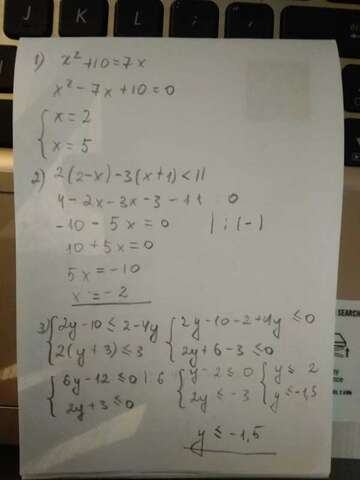 1) x² + 10 = 7x
x² - 7x + 10 = 0
{ x = 2
x = 5
2) 2(2-x) - 3(x+1) < 11
4 - 2x - 3x - 3 - 11 0
-10 - 5x = 0 | : (-)
10 + 5x = 0
5x = -10
x = -2
3) { 2y - 10 ≤ 2 - 4y { 2y - 10 - 2 + 4y ≤ 0
2(y+3) ≤ 3 2y + 6 - 3 ≤ 0
{ 6y - 12 ≤ 0 | : 6 { y - 2 ≤ 0 { y ≤ 2
2y + 3 ≤ 0 2y ≤ -3 y ≤ -1,5
y ≤ -1,5
SEARCH